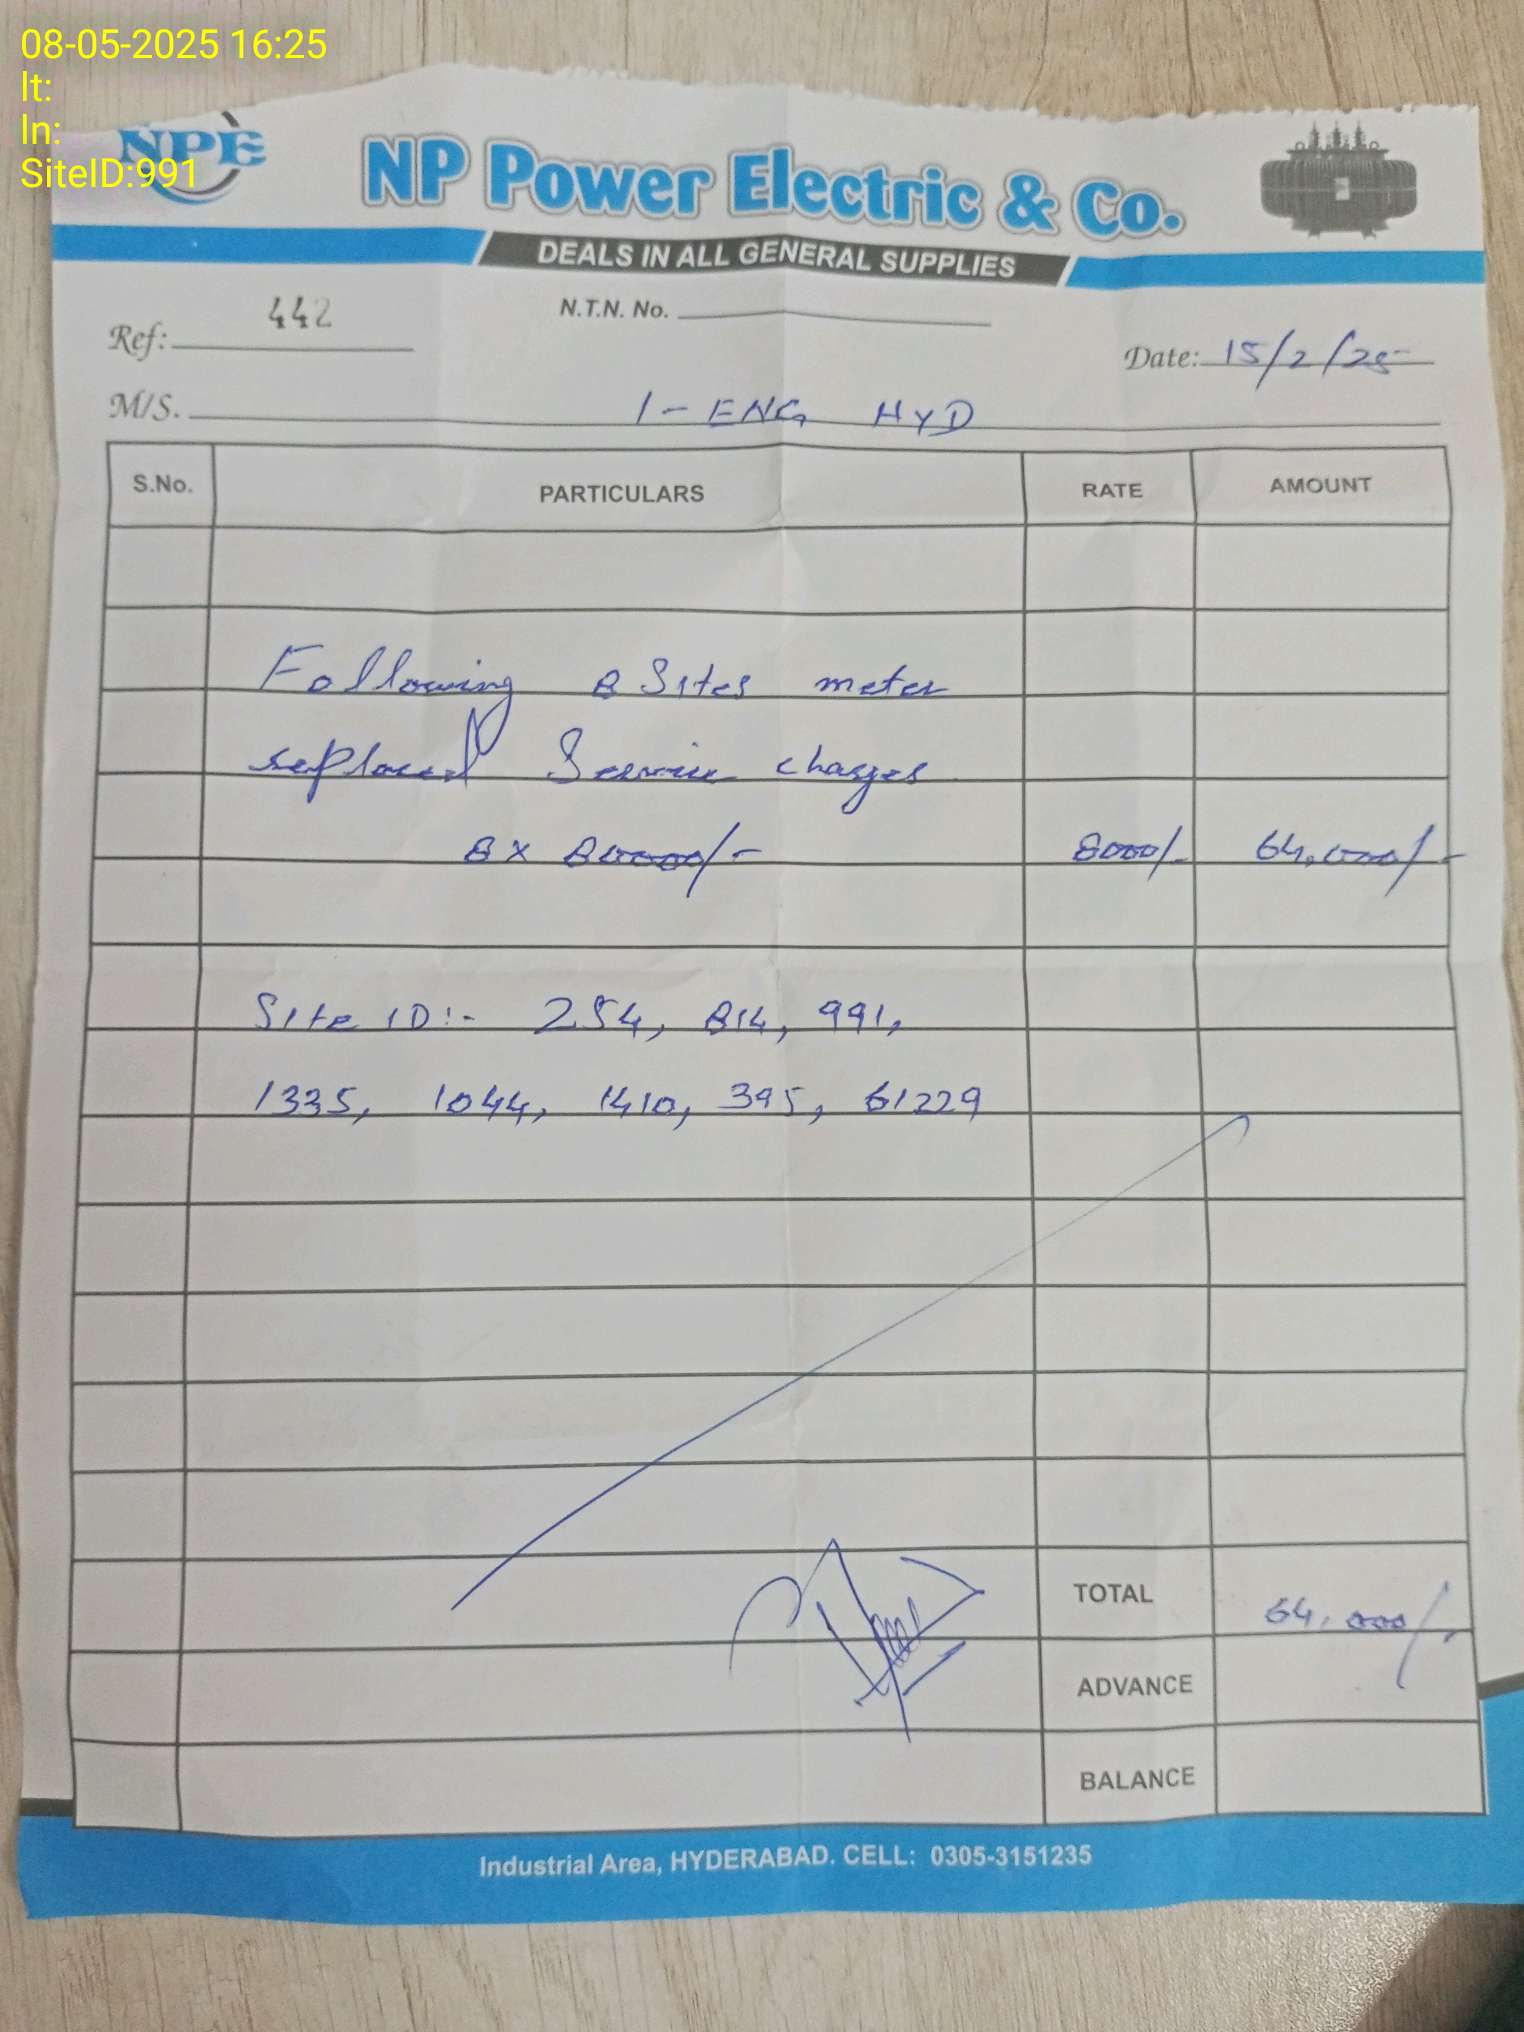 08-05-2025 16:25
lt:
ln:
SiteID:991
NPE
NP Power Electric & Co.
DEALS IN ALL GENERAL SUPPLIES
Ref: 442
N.T.N. No.
Date: 15/2/25
M/S. I-ENG HYD
S.No. PARTICULARS RATE AMOUNT
Following 8 Sites meter
replaced Service charges
8 x 80000/- 8000/- 64,000/-
Site ID:- 254, 814, 991,
1335, 1044, 1410, 395, 61229
TOTAL 64,000/-
ADVANCE
BALANCE
Industrial Area, HYDERABAD. CELL: 0305-3151235